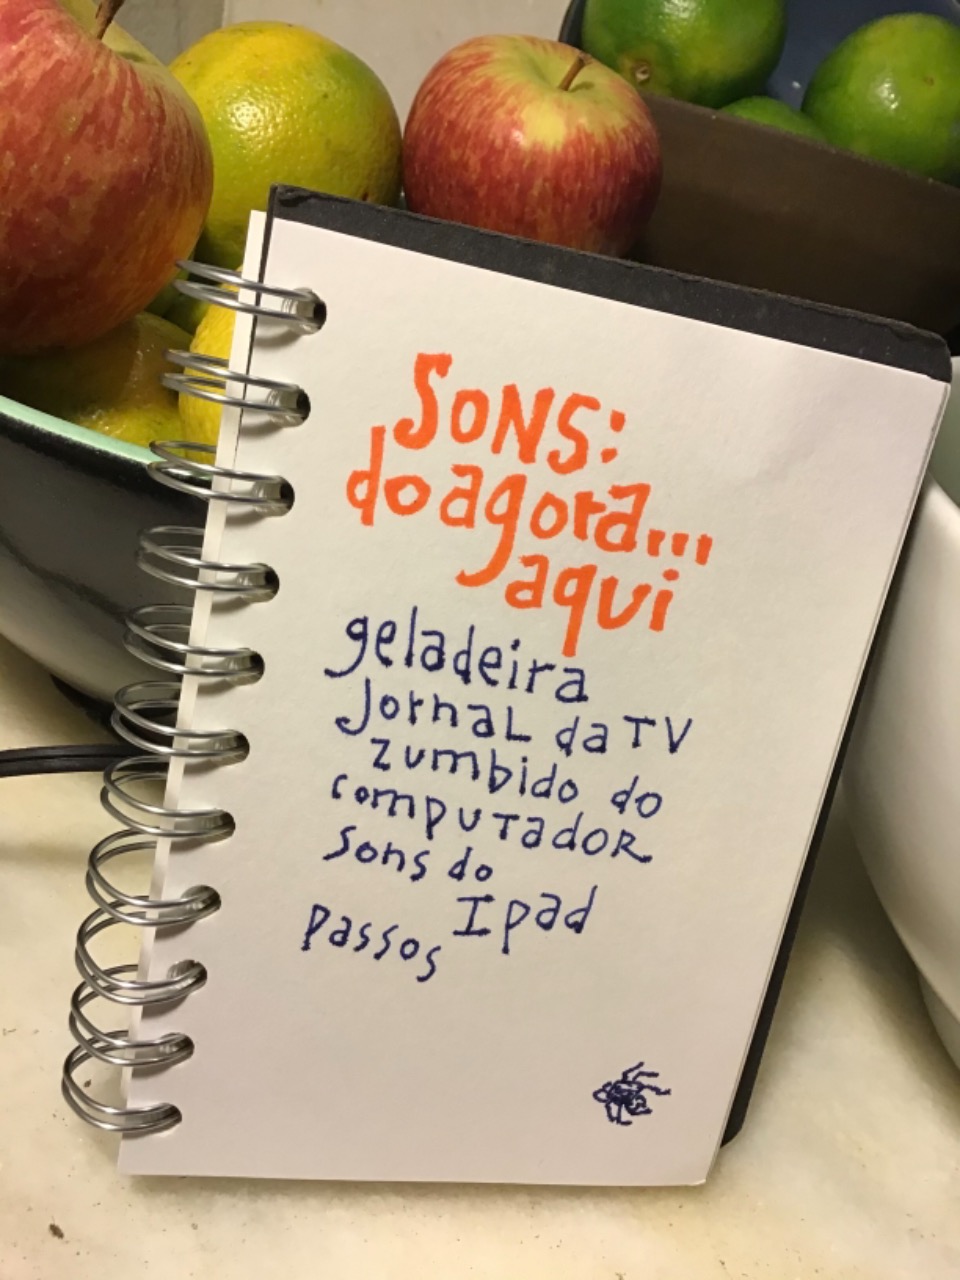 SONS:
do agora...
aqui
geladeira
Jornal da TV
zumbido do
computador
sons do
Ipad
passos